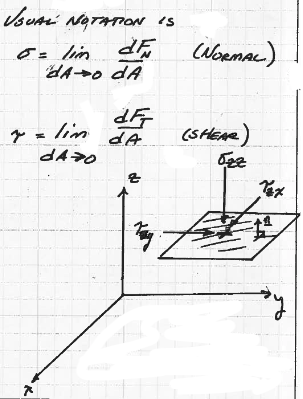 USUAL NOTATION IS
σ = lim dA→0 dFN/dA (NORMAL)
τ = lim dA→0 dFT/dA (SHEAR)
z
σzz
τzx
τzy
y
x